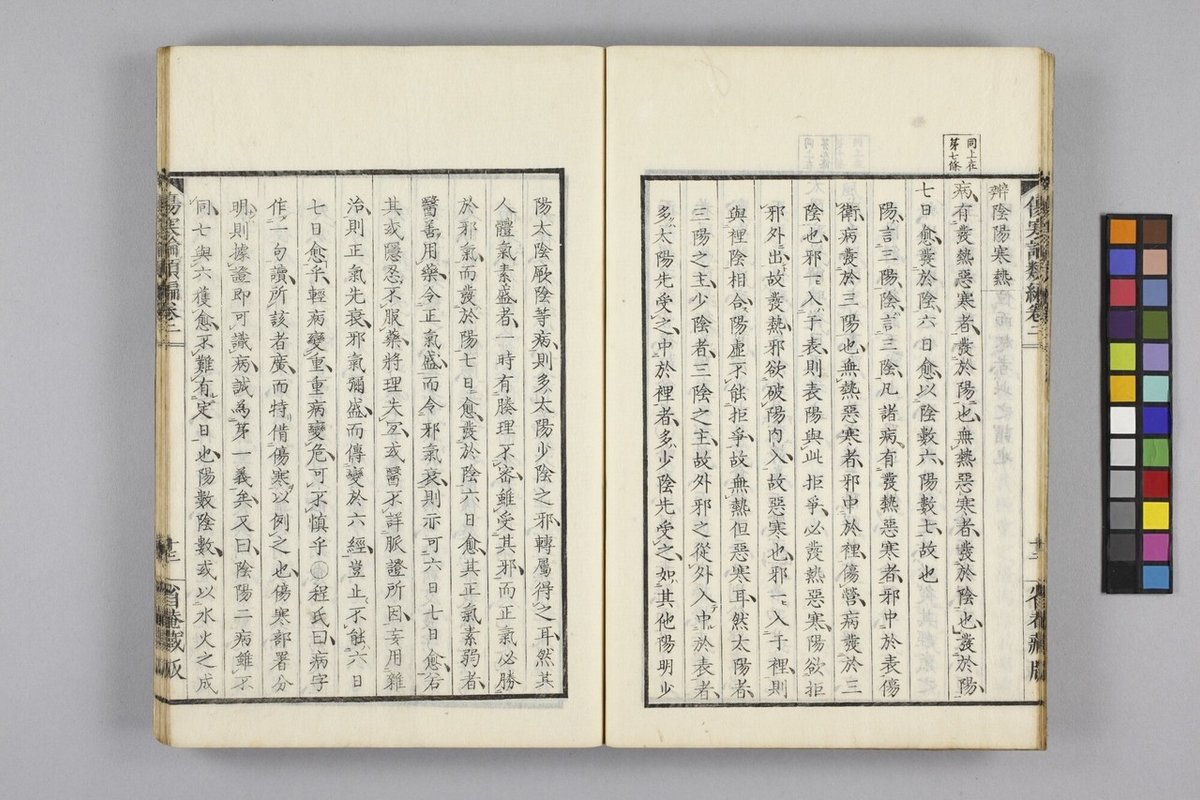 同上在
第七條
辨陰陽寒熱
病有發熱惡寒者發於陽也無熱惡寒者發於陰也發於陽
七日愈發於陰六日愈以陰數六陽數七故也
陽言三陽陰言三陰凡諸病有發熱惡寒者邪中於表傷
衛病發於三陽也無熱惡寒者邪中於裡傷營病發於三
陰也邪一入于表則表陽與此拒爭必發熱惡寒陽欲拒
邪外出故發熱邪欲破陽內入故惡寒也邪一入于裡則
與裡陰相合陽虛不能拒爭故無熱但惡寒耳然太陽者
三陽之主少陰者三陰之主故外邪之從外入中於表者
多太陽先受之中於裡者多少陰先受之如其他陽明少
陽太陰厥陰等病則多太陽少陰之邪轉屬得之耳然其
人體氣素盛者一時有腠理不密雖受其邪而正氣必勝
於邪氣而發於陽七日愈發於陰六日愈其正氣素弱者
醫善用藥令正氣盛而令邪氣衰則亦可六日七日愈若
其或隱忍不服藥將理失宜或醫不詳脈證所因妄用雜
治則正氣先衰邪氣彌盛而傳變於六經豈止不能六日
七日愈乎輕病變重重病變危可不慎乎○程氏曰病字
作一句讀所該者廣而特借傷寒以例之也傷寒部署分
明則據證即可識病誠為第一義矣又曰陰陽二病雖不
同七與六獲愈不難有定日也陽數陰數或以水火之成
傷寒論類編卷二
十二
省菴藏版